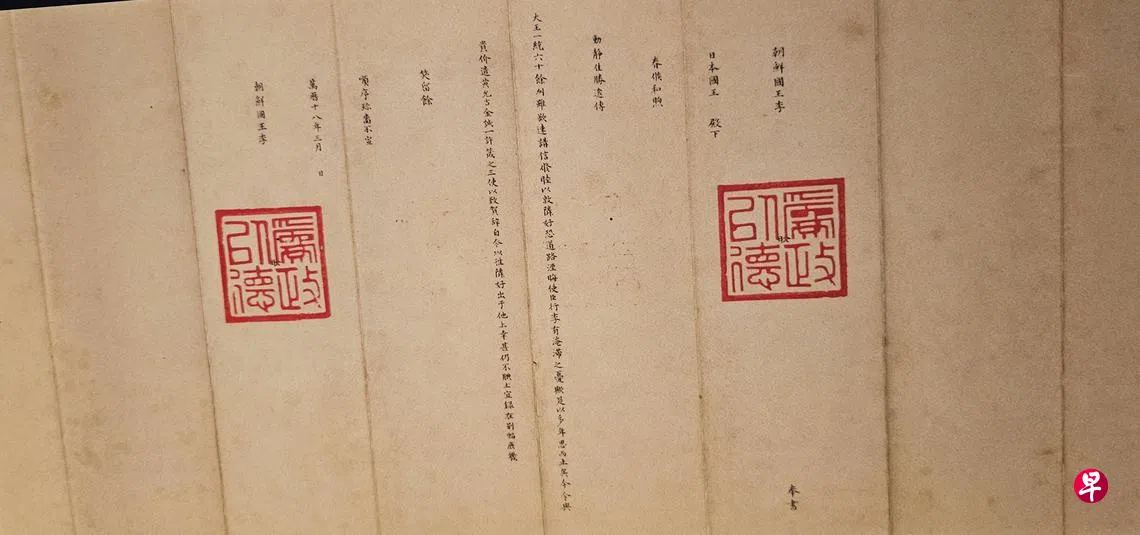 朝鮮國王李 奉書
爲政以德
日本國王 殿下
春候和煦
動靜佳勝遠傳
大王一統六十餘州雖欲速講信修睦以敦隣好恐道路湮晦使臣行李有淹滯之憂歟是以多年思而止矣今令與
貴价遣黃允吉金誠一許筬之三使以致賀辭自今以往隣好出于他上幸甚仍不腆土宜錄在別幅庶幾
笑留餘
順序珍嗇不宣
萬曆十八年三月 日
朝鮮國王李
爲政以德
早